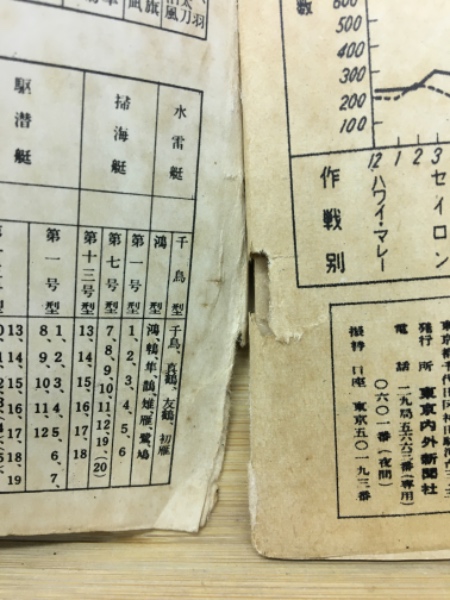 水雷艇
掃海艇
駆潜艇
千鳥型
鴻型
第一号型
第七号型
第十三号型
第一号型
千鳥、真鶴、友鶴、初雁
鴻、鵯、隼、鵲、雉、雁、鷺、鳩
1、2、3、4、5、6
7、8、9、10、11、12、19、(20)
13、14、15、16、17、18
1、2、3、4、5、6、7、
8、9、10、11、12
13、14、15、16、17、18、19
500
400
300
200
100
12 1 2 3
作戦別
ハワイ・マレー
セイロン
発行所 東京内外新聞社
電話 二九局五六六三番(専用)
〇六〇一番(夜間)
振替口座 東京五〇一九三番